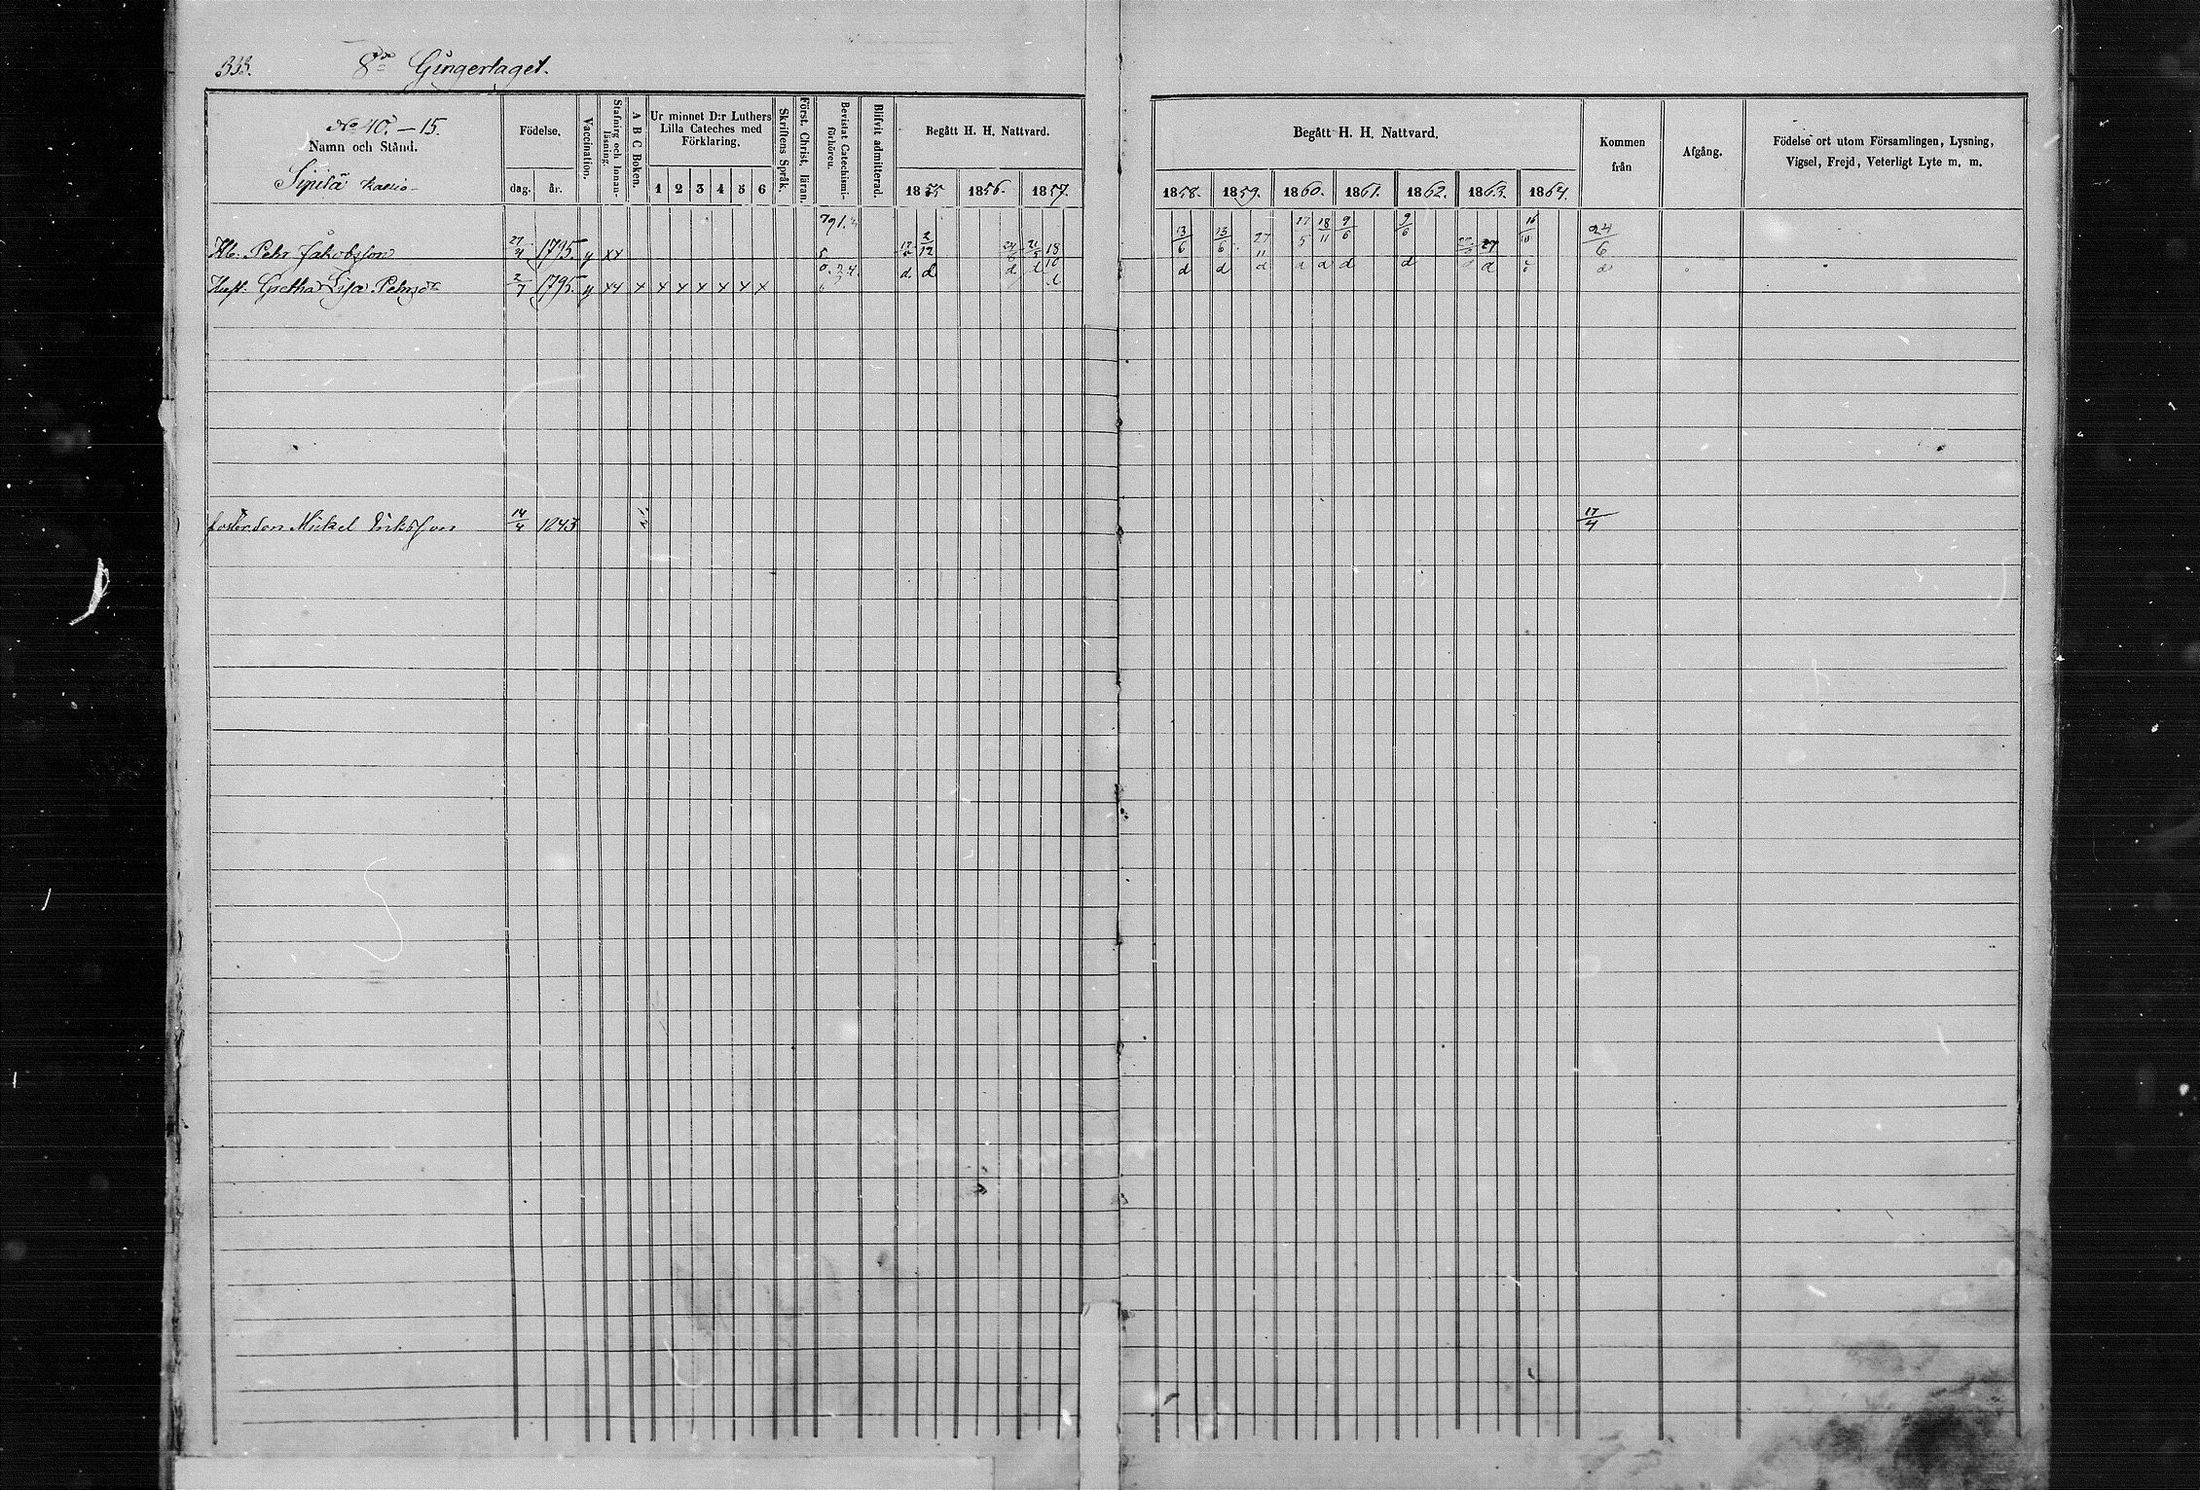 333. 8de Gingerlaget.
No 40. – 15.
Namn och Stånd.
Sipilä
Födelse.
dag. år.
Vaccination.
Stafning och Innanläsning.
A B C Boken.
Ur minnet D:r Luthers
Lilla Cateches med
Förklaring.
1 2 3 4 5 6
Skriftens Språk.
Först. Christ. läran.
Bevistat Catechismiförhören.
Blifvit admitterad.
Begått H. H. Nattvard.
1855 1856. 1857.
Begått H. H. Nattvard.
1858. 1859. 1860. 1861. 1862. 1863. 1864.
Kommen
från
Afgång.
Födelse ort utom Församlingen, Lysning,
Vigsel, Frejd, Veterligt Lyte m. m.
Pehr Jakobsson 27/4 1795. y xx 2/12 21/5 18/10 13/6 13/6 27/11 17/5 18/11 9/6 9/6 27 16/10 24/6
Hust. Gretha Lisa Pehrsdr 2/7 1795. y xx x x x x x x x d d d d d d d d d d d d d
Fosterson Mickel Eriksson 14/4 1843 17/4